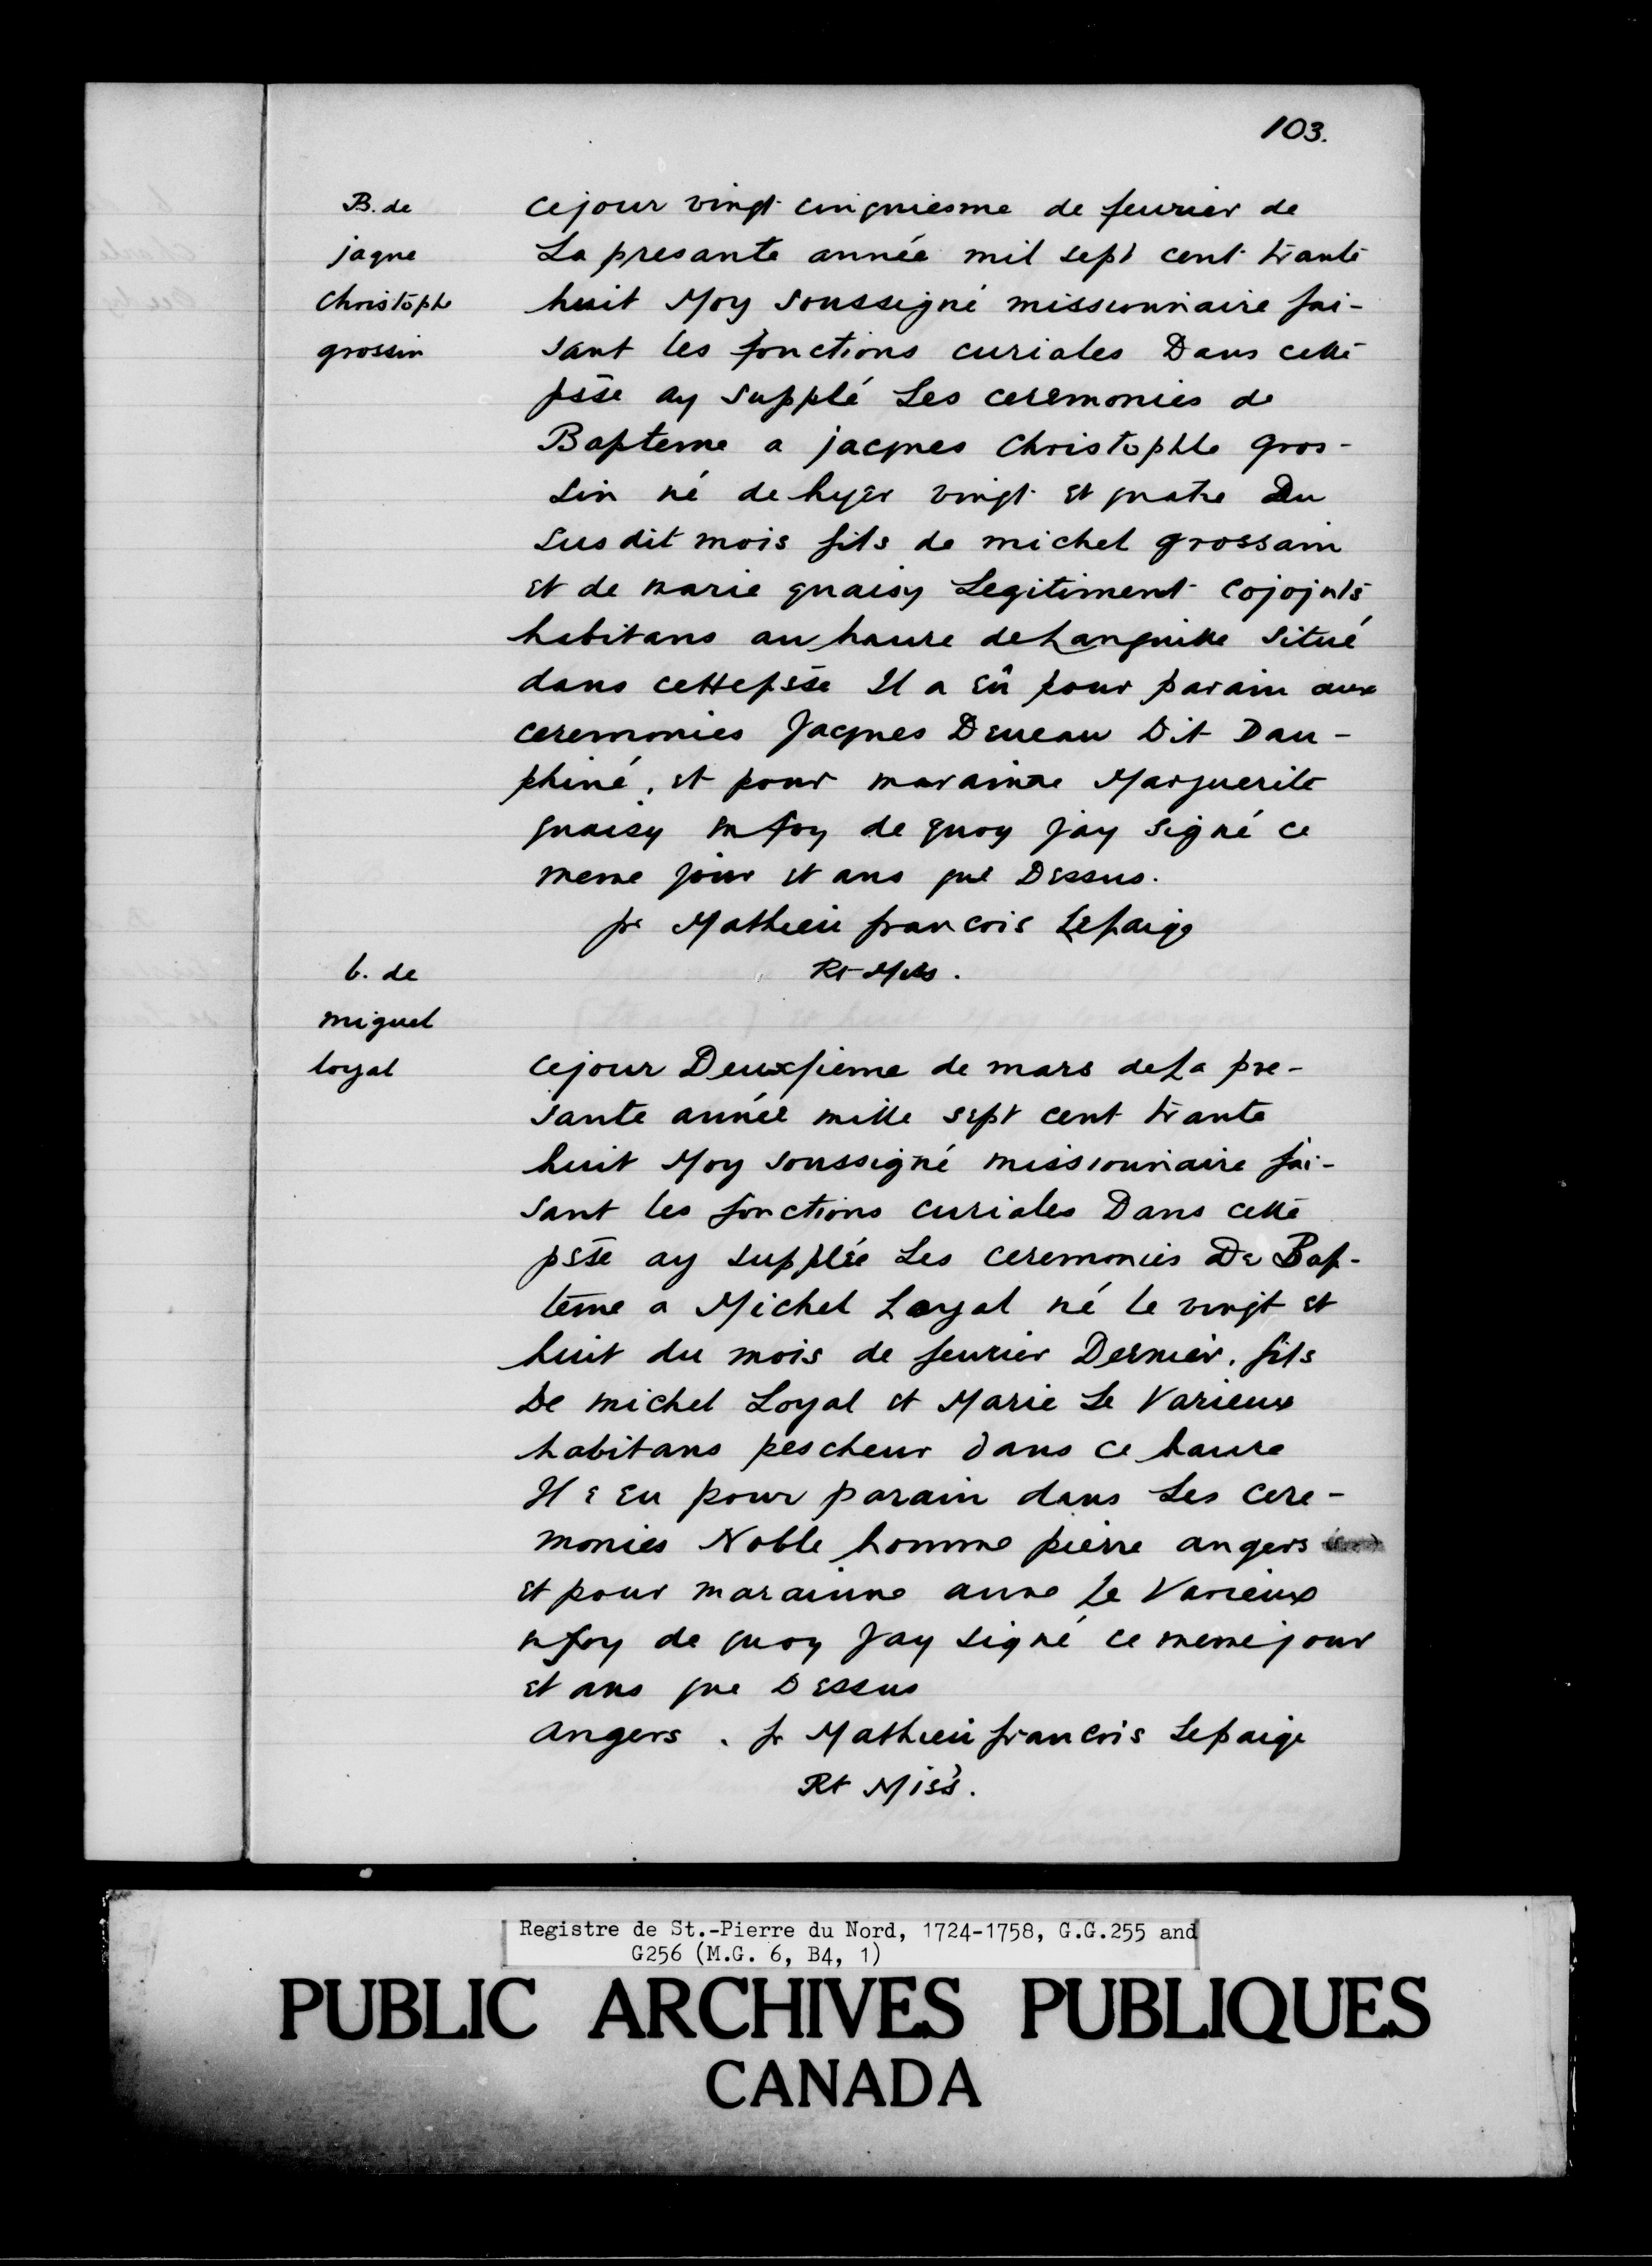 103.
B. de
jaque
Christophe
grossin
cejour vingt cinquiesme de feurier de
La presante année mil sept cent trante
huit Moy soussigné missionnaire fai-
sant les fonctions curiales Dans cette
psse ay supplé Les ceremonies de
Bapteme a jacques Christophle gros-
sin né de hyer vingt et quatre Du
susdit mois fils de michel grossain
et de marie quaisy Legitiment cojojnts
habitans au haure de Languille situé
dans cette psse Il a eû pour parain aux
ceremonies Jacques Deueau Dit Dau-
phiné, et pour marainne Marguerite
quaisy en foy de quoy jay signé ce
meme jour et ans que Dessus.
fr Mathieu francois Lepaige
Rt Miss.
b. de
miguel
loyal
cejour Deuxsieme de mars de La pre-
sante année mille sept cent trante
huit Moy soussigné missionnaire fai-
sant les fonctions curiales Dans cette
psse ay supplée Les ceremonies De Bap-
teme a Michel Loyal né le vingt et
huit du mois de feurier Dernier, fils
De michel Loyal et Marie Le Varieux
habitans pescheur dans ce haure
Il a eu pour parain dans Les cere-
monies Noble homme pierre angers
et pour marainne anne Le Varieux
en foy de quoy Jay signé ce meme jour
et ans que Dessus
angers . fr Mathieu francois Lepaige
Rt Miss.
Registre de St.-Pierre du Nord, 1724-1758, G.G.255 and
G256 (M.G. 6, B4, 1)
PUBLIC ARCHIVES PUBLIQUES
CANADA